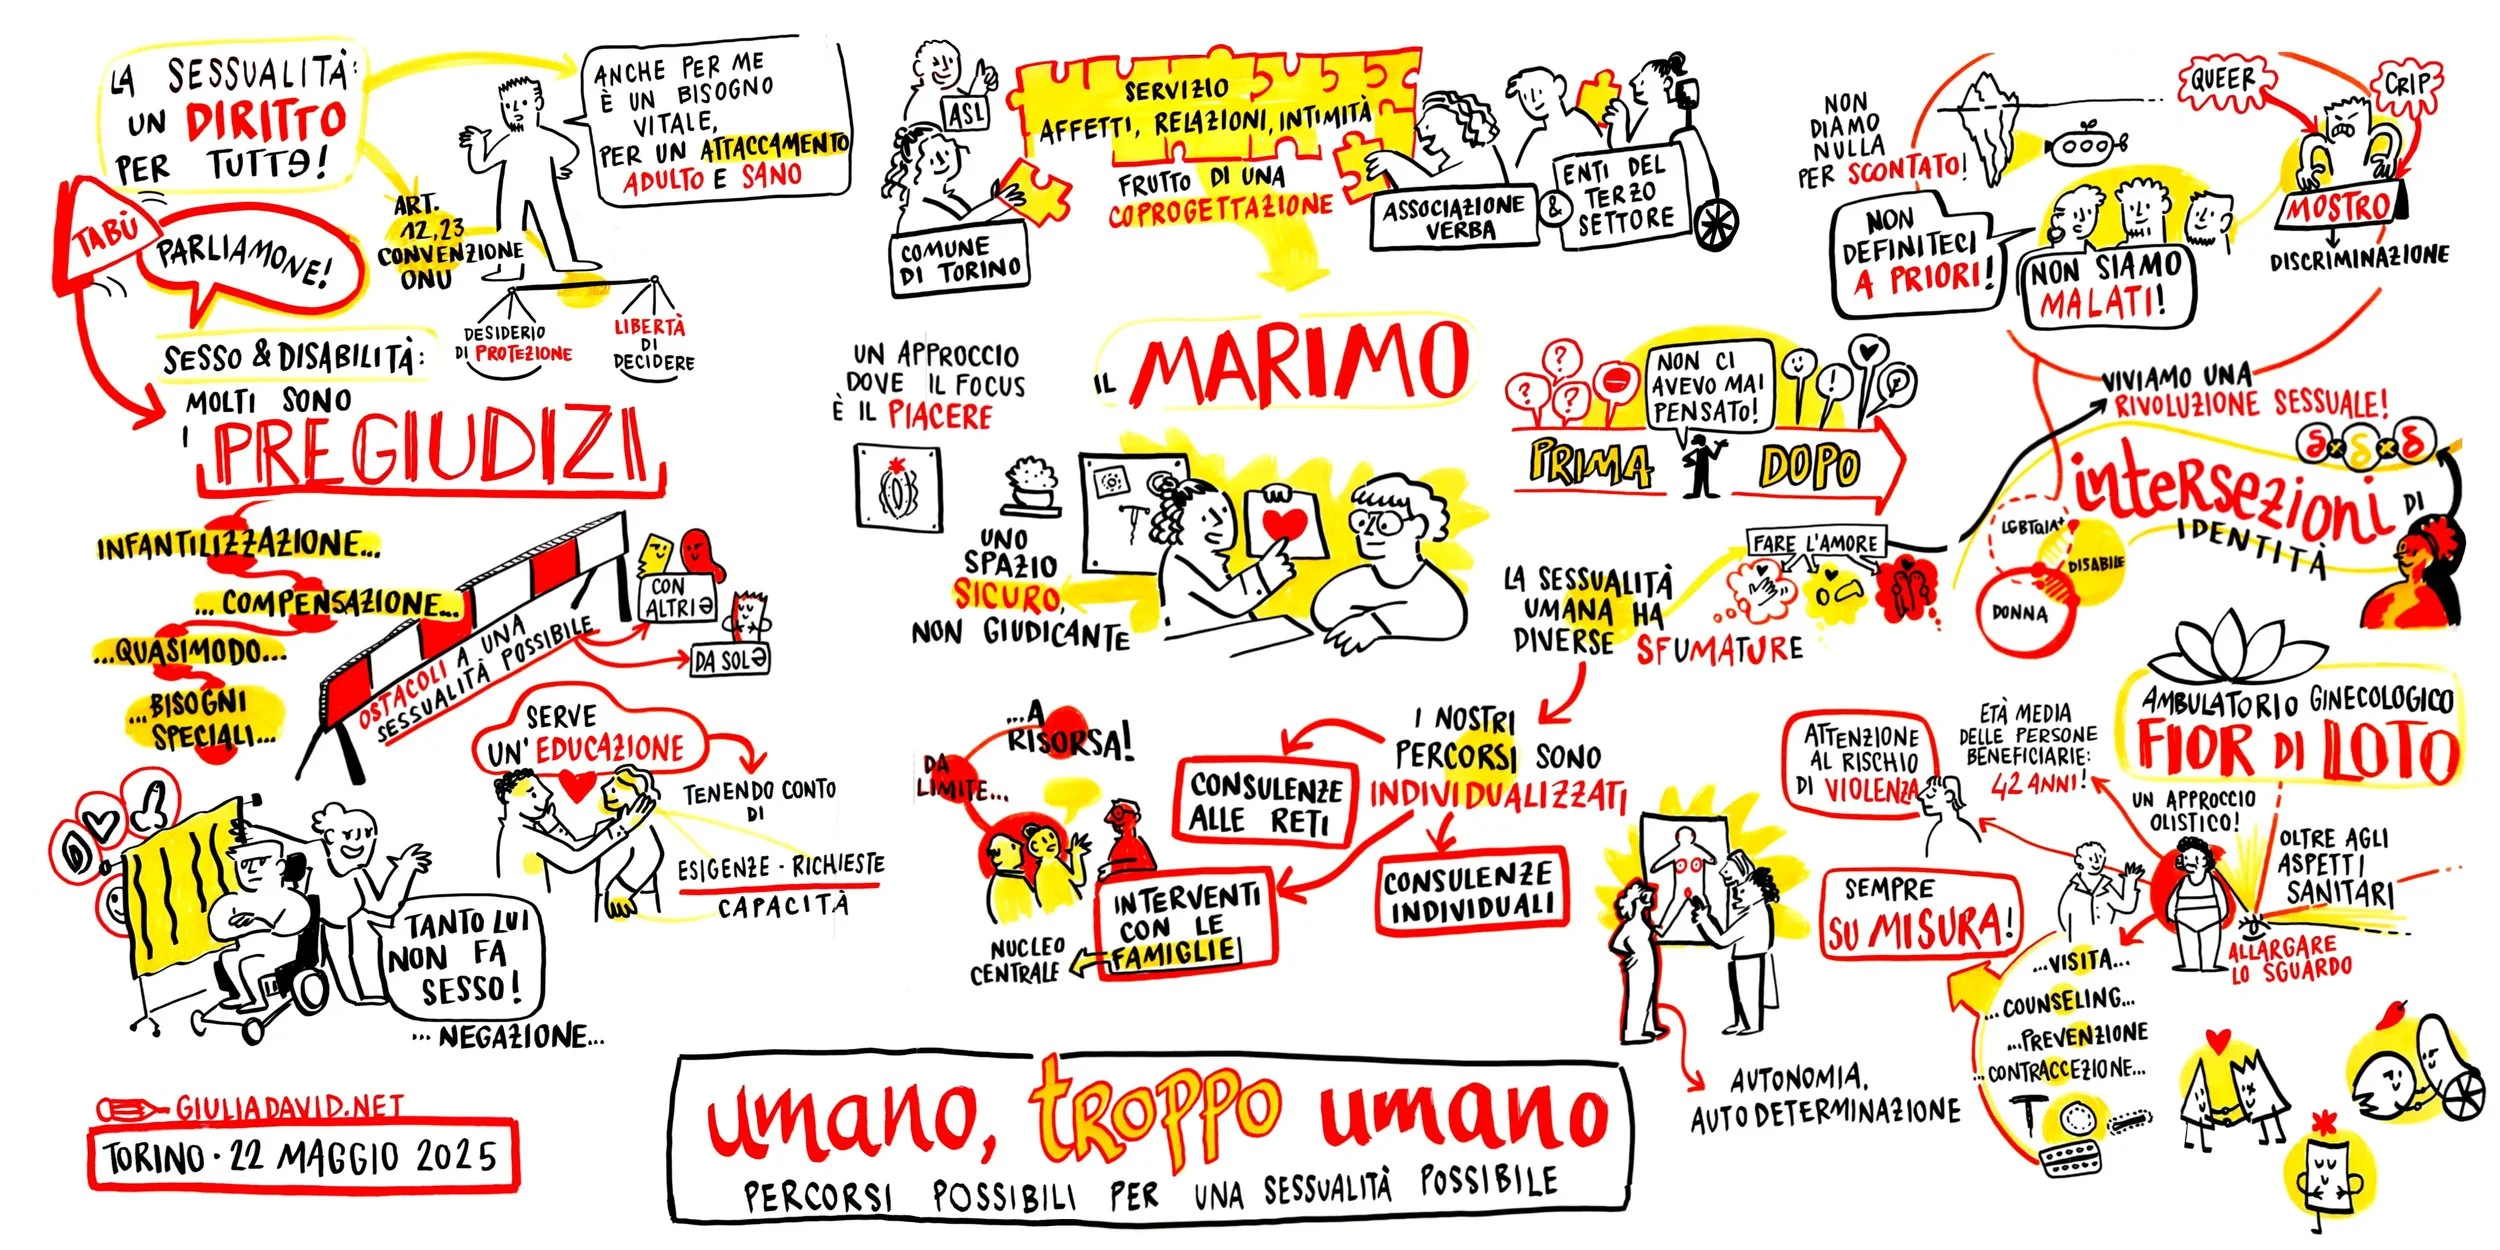 LA SESSUALITÀ:
UN DIRITTO
PER TUTTƏ!
ANCHE PER ME
È UN BISOGNO
VITALE,
PER UN ATTACCAMENTO
ADULTO E SANO
TABÙ
PARLIAMONE!
ART.
12,23
CONVENZIONE
ONU
DESIDERIO
DI PROTEZIONE
LIBERTÀ
DI
DECIDERE
SESSO & DISABILITÀ:
MOLTI SONO
I PREGIUDIZI
INFANTILIZZAZIONE...
... COMPENSAZIONE...
...QUASIMODO...
...BISOGNI
SPECIALI...
OSTACOLI A UNA
SESSUALITÀ POSSIBILE
CON
ALTRIƏ
DA SOLƏ
SERVE
UN'EDUCAZIONE
TENENDO CONTO
DI
ESIGENZE - RICHIESTE
CAPACITÀ
TANTO LUI
NON FA
SESSO!
... NEGAZIONE...
GIULIADAVID.NET
TORINO · 22 MAGGIO 2025
ASL
COMUNE
DI TORINO
SERVIZIO
AFFETTI, RELAZIONI, INTIMITÀ
FRUTTO DI UNA
COPROGETTAZIONE
ASSOCIAZIONE
VERBA
&
ENTI DEL
TERZO
SETTORE
IL MARIMO
UN APPROCCIO
DOVE IL FOCUS
È IL PIACERE
UNO
SPAZIO
SICURO,
NON GIUDICANTE
? ? ?
NON CI
AVEVO MAI
PENSATO!
!
PRIMA
DOPO
FARE L'AMORE
LA SESSUALITÀ
UMANA HA
DIVERSE SFUMATURE
I NOSTRI
PERCORSI SONO
INDIVIDUALIZZATI
CONSULENZE
ALLE RETI
CONSULENZE
INDIVIDUALI
INTERVENTI
CON LE
FAMIGLIE
NUCLEO
CENTRALE
DA
LIMITE...
...A
RISORSA!
AUTONOMIA,
AUTODETERMINAZIONE
umano, troppo umano
PERCORSI POSSIBILI PER UNA SESSUALITÀ POSSIBILE
NON
DIAMO
NULLA
PER SCONTATO!
QUEER
CRIP
MOSTRO
DISCRIMINAZIONE
NON
DEFINITECI
A PRIORI!
NON SIAMO
MALATI!
VIVIAMO UNA
RIVOLUZIONE SESSUALE!
intersezioni DI
IDENTITÀ
LGBTQIA+
DISABILE
DONNA
AMBULATORIO GINECOLOGICO
FIOR DI LOTO
UN APPROCCIO
OLISTICO!
OLTRE AGLI
ASPETTI
SANITARI
ALLARGARE
LO SGUARDO
ETÀ MEDIA
DELLE PERSONE
BENEFICIARIE:
42 ANNI!
ATTENZIONE
AL RISCHIO
DI VIOLENZA
SEMPRE
SU MISURA!
...VISITA...
...COUNSELING...
...PREVENZIONE
...CONTRACCEZIONE...